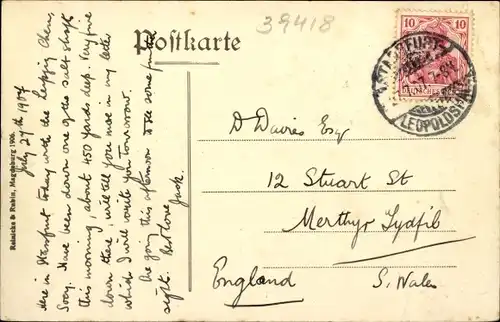 39418
Postkarte
10 10
STASSFURT
LEOPOLDSHALL
July 27th 1907
Here in Stassfurt today with the Leipzig Chem.
Socy. Have been down one of the salt shafts
this morning, about 450 yards deep. Very fine
down there, will tell you more in my letter
which I will write you tomorrow.
Are going this afternoon to see some further
sights. Best love Jack.
D Davies Esq
12 Stuart St
Merthyr Tydfil
England S. Wales
Reinicke & Rubin, Magdeburg 1906.